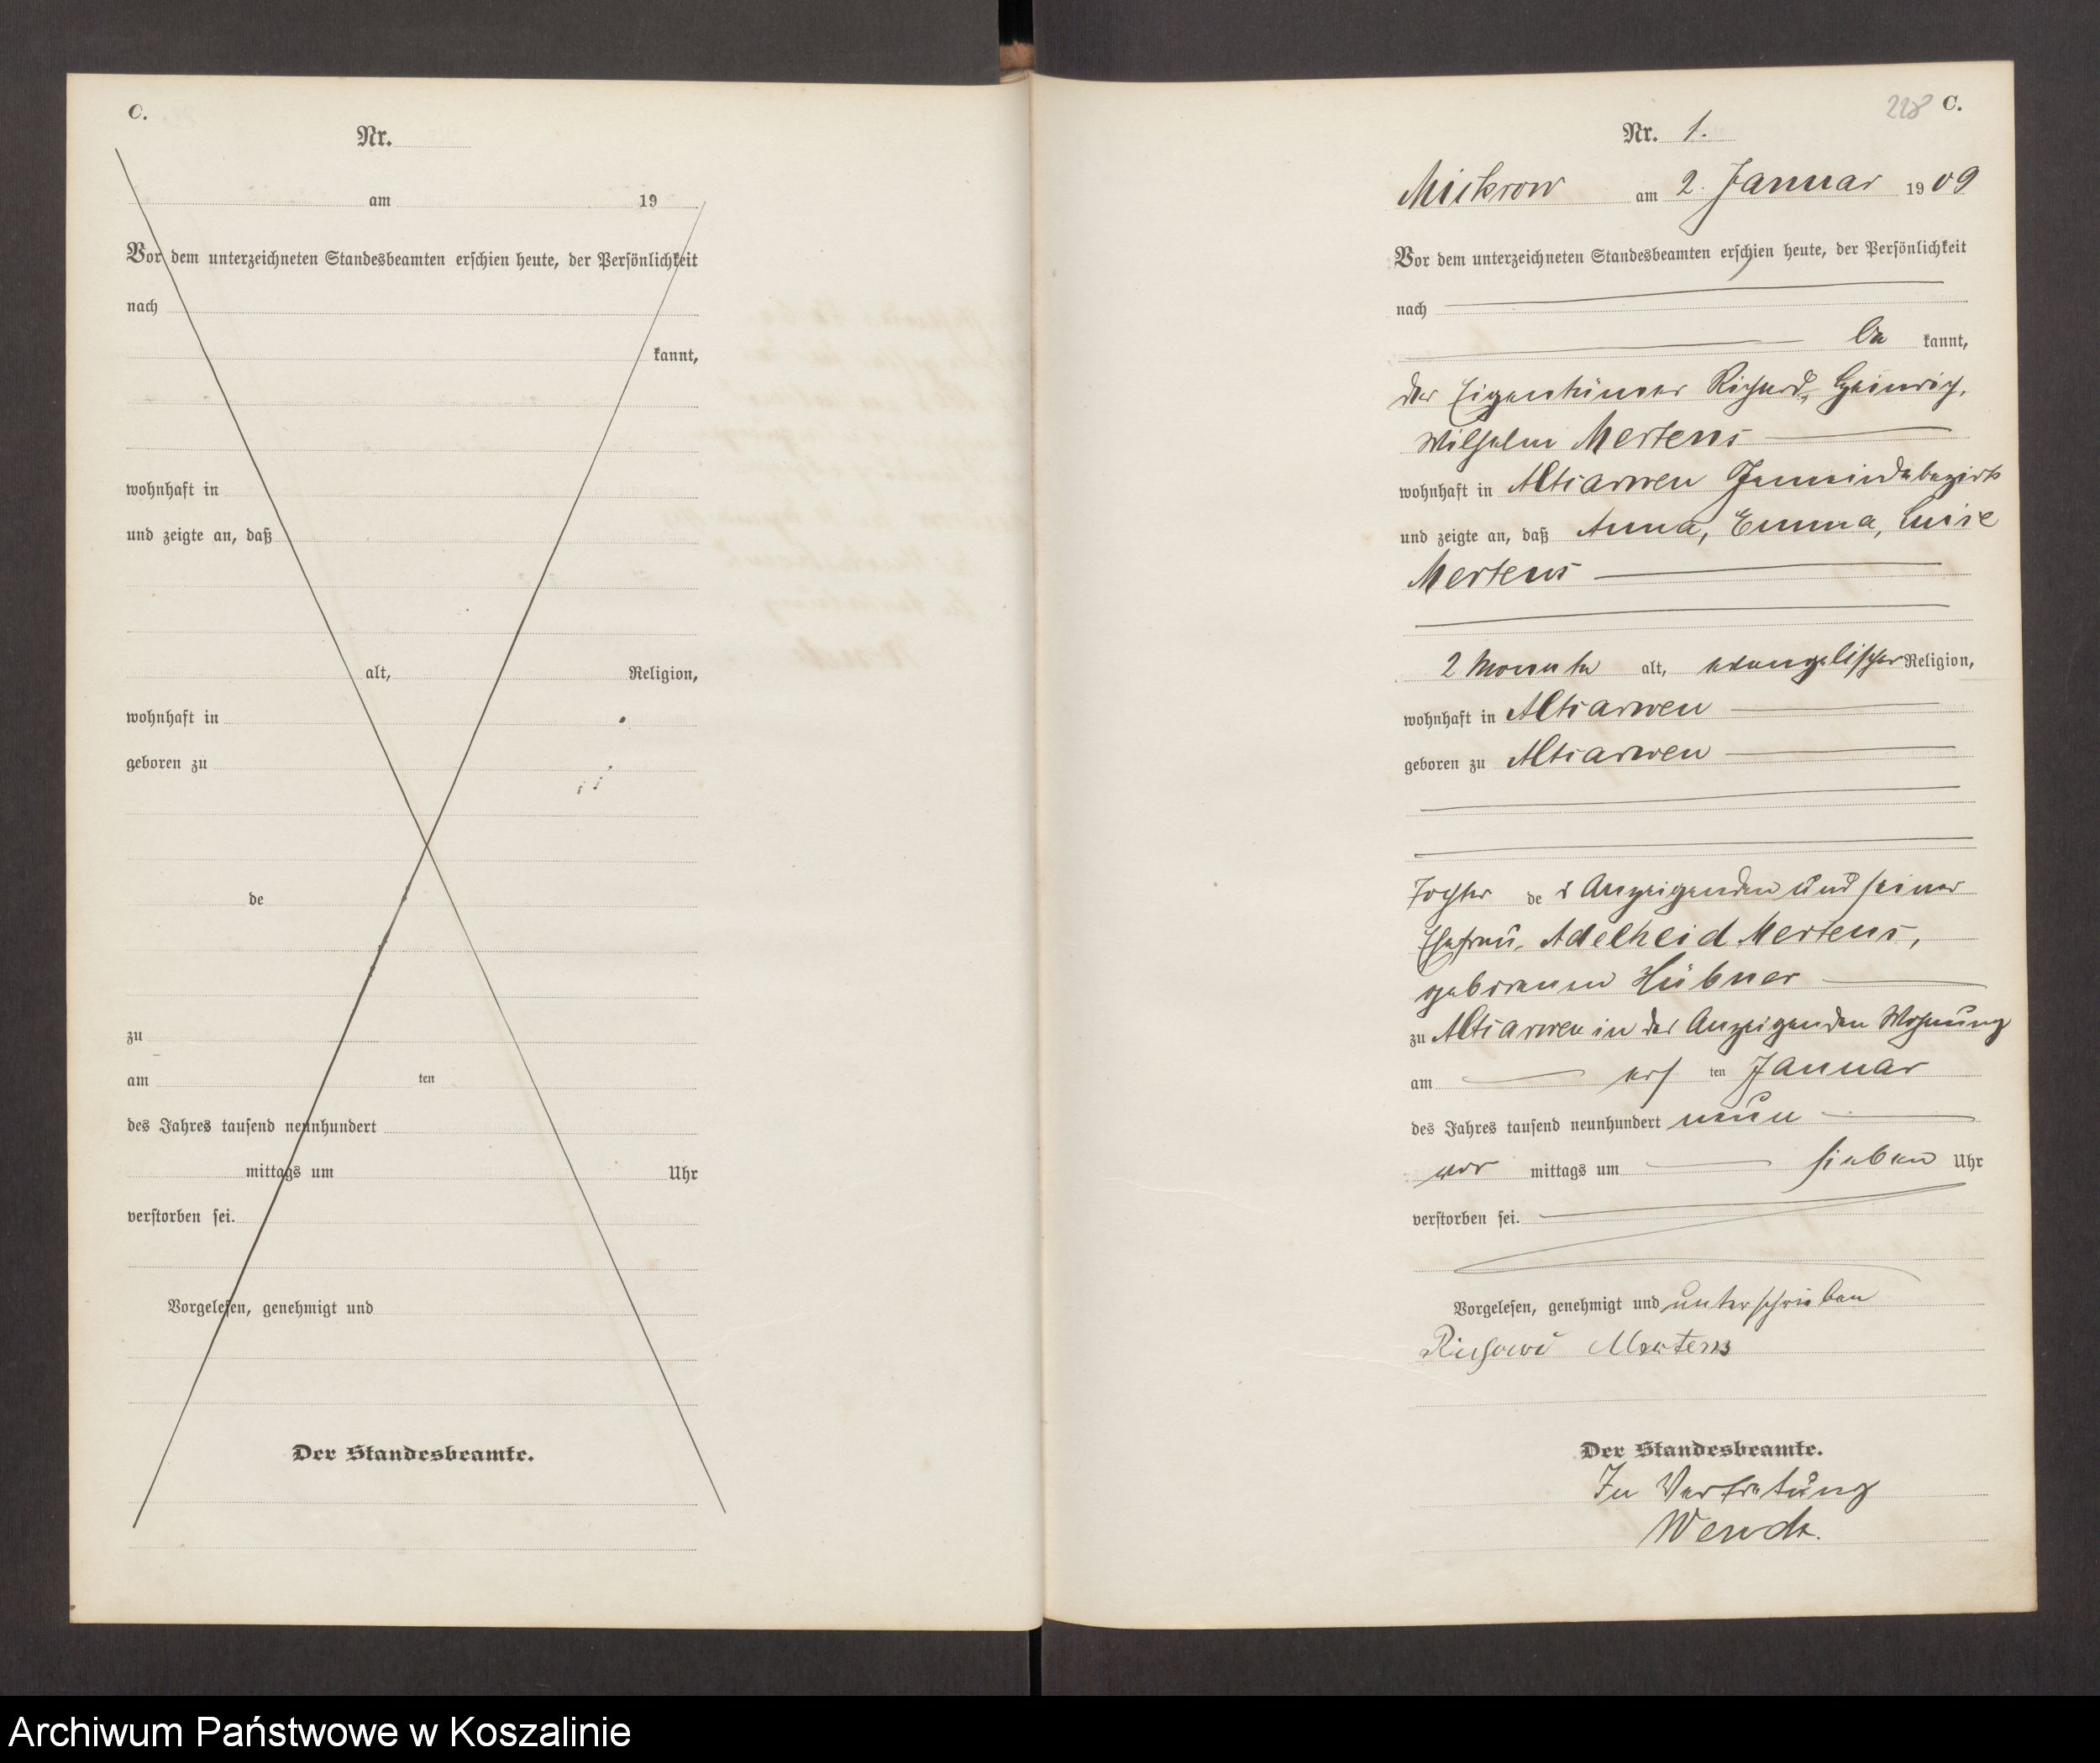 C.
Nr.
am 19
Vor dem unterzeichneten Standesbeamten erschien heute, der Persönlichkeit
nach
kannt,
wohnhaft in
und zeigte an, daß
alt, Religion,
wohnhaft in
geboren zu
de
zu
am ten
des Jahres tausend neunhundert
mittags um Uhr
verstorben sei.
Vorgelesen, genehmigt und
Der Standesbeamte.
228 C.
Nr. 1.
Mickrow am 2. Januar 1909
Vor dem unterzeichneten Standesbeamten erschien heute, der Persönlichkeit
nach
be kannt,
der Eigentümer Richard, Heinrich,
Wilhelm Mertens
wohnhaft in Altjarwen Gemeindebezirk
und zeigte an, daß Anna, Emma, Luise
Mertens
2 Monate alt, evangelischer Religion,
wohnhaft in Altjarwen
geboren zu Altjarwen
Tochter de s Anzeigenden und seiner
Ehefrau, Adelheid Mertens,
geborenen Hübner
zu Altjarwen in der Anzeigenden Wohnung
am ers ten Januar
des Jahres tausend neunhundert neun
vor mittags um sieben Uhr
verstorben sei.
Vorgelesen, genehmigt und unterschrieben
Richard Mertens
Der Standesbeamte.
In Vertretung
Wendt.
Archiwum Państwowe w Koszalinie